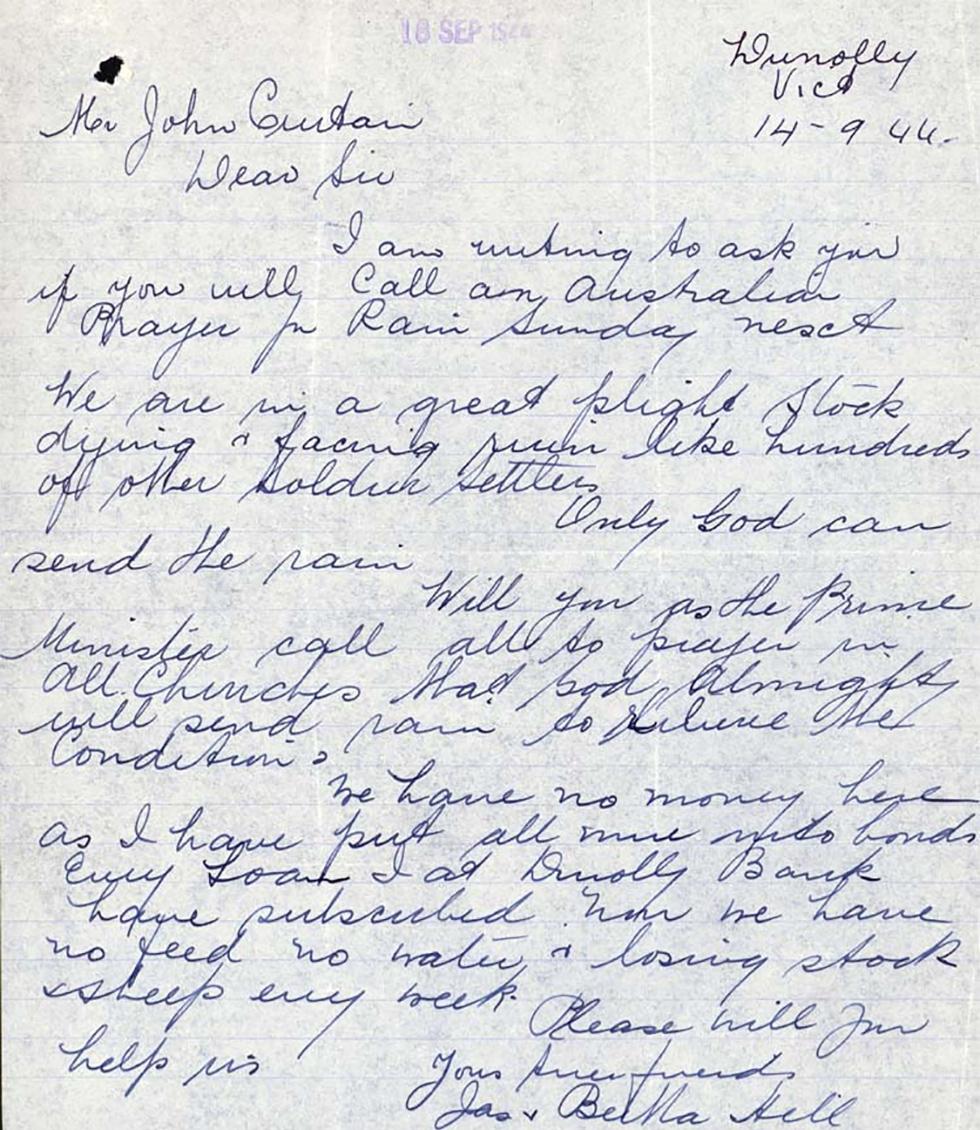 18 SEP 1944
Dunolly
Vict
14-9 44.
Mr John Curtain
Dear Sir
I am writing to ask you
if you will Call an Australian
Prayer for Rain Sunday next
We are in a great plight Stock
dying & facing ruin like hundreds
of other Soldier Settlers
Only God can
send the rain
Will you as the Prime
Minister call all to prayer in
All Churches that God Almighty
will send rain to Relieve the
Conditions
We have no money here
as I have put all mine into bonds
Every Loan I at Dunolly Bank
have subscribed Now we have
no feed no water & losing stock
& sheep every week.
Please will you
help us
Yours
Jas & Bertha Hell